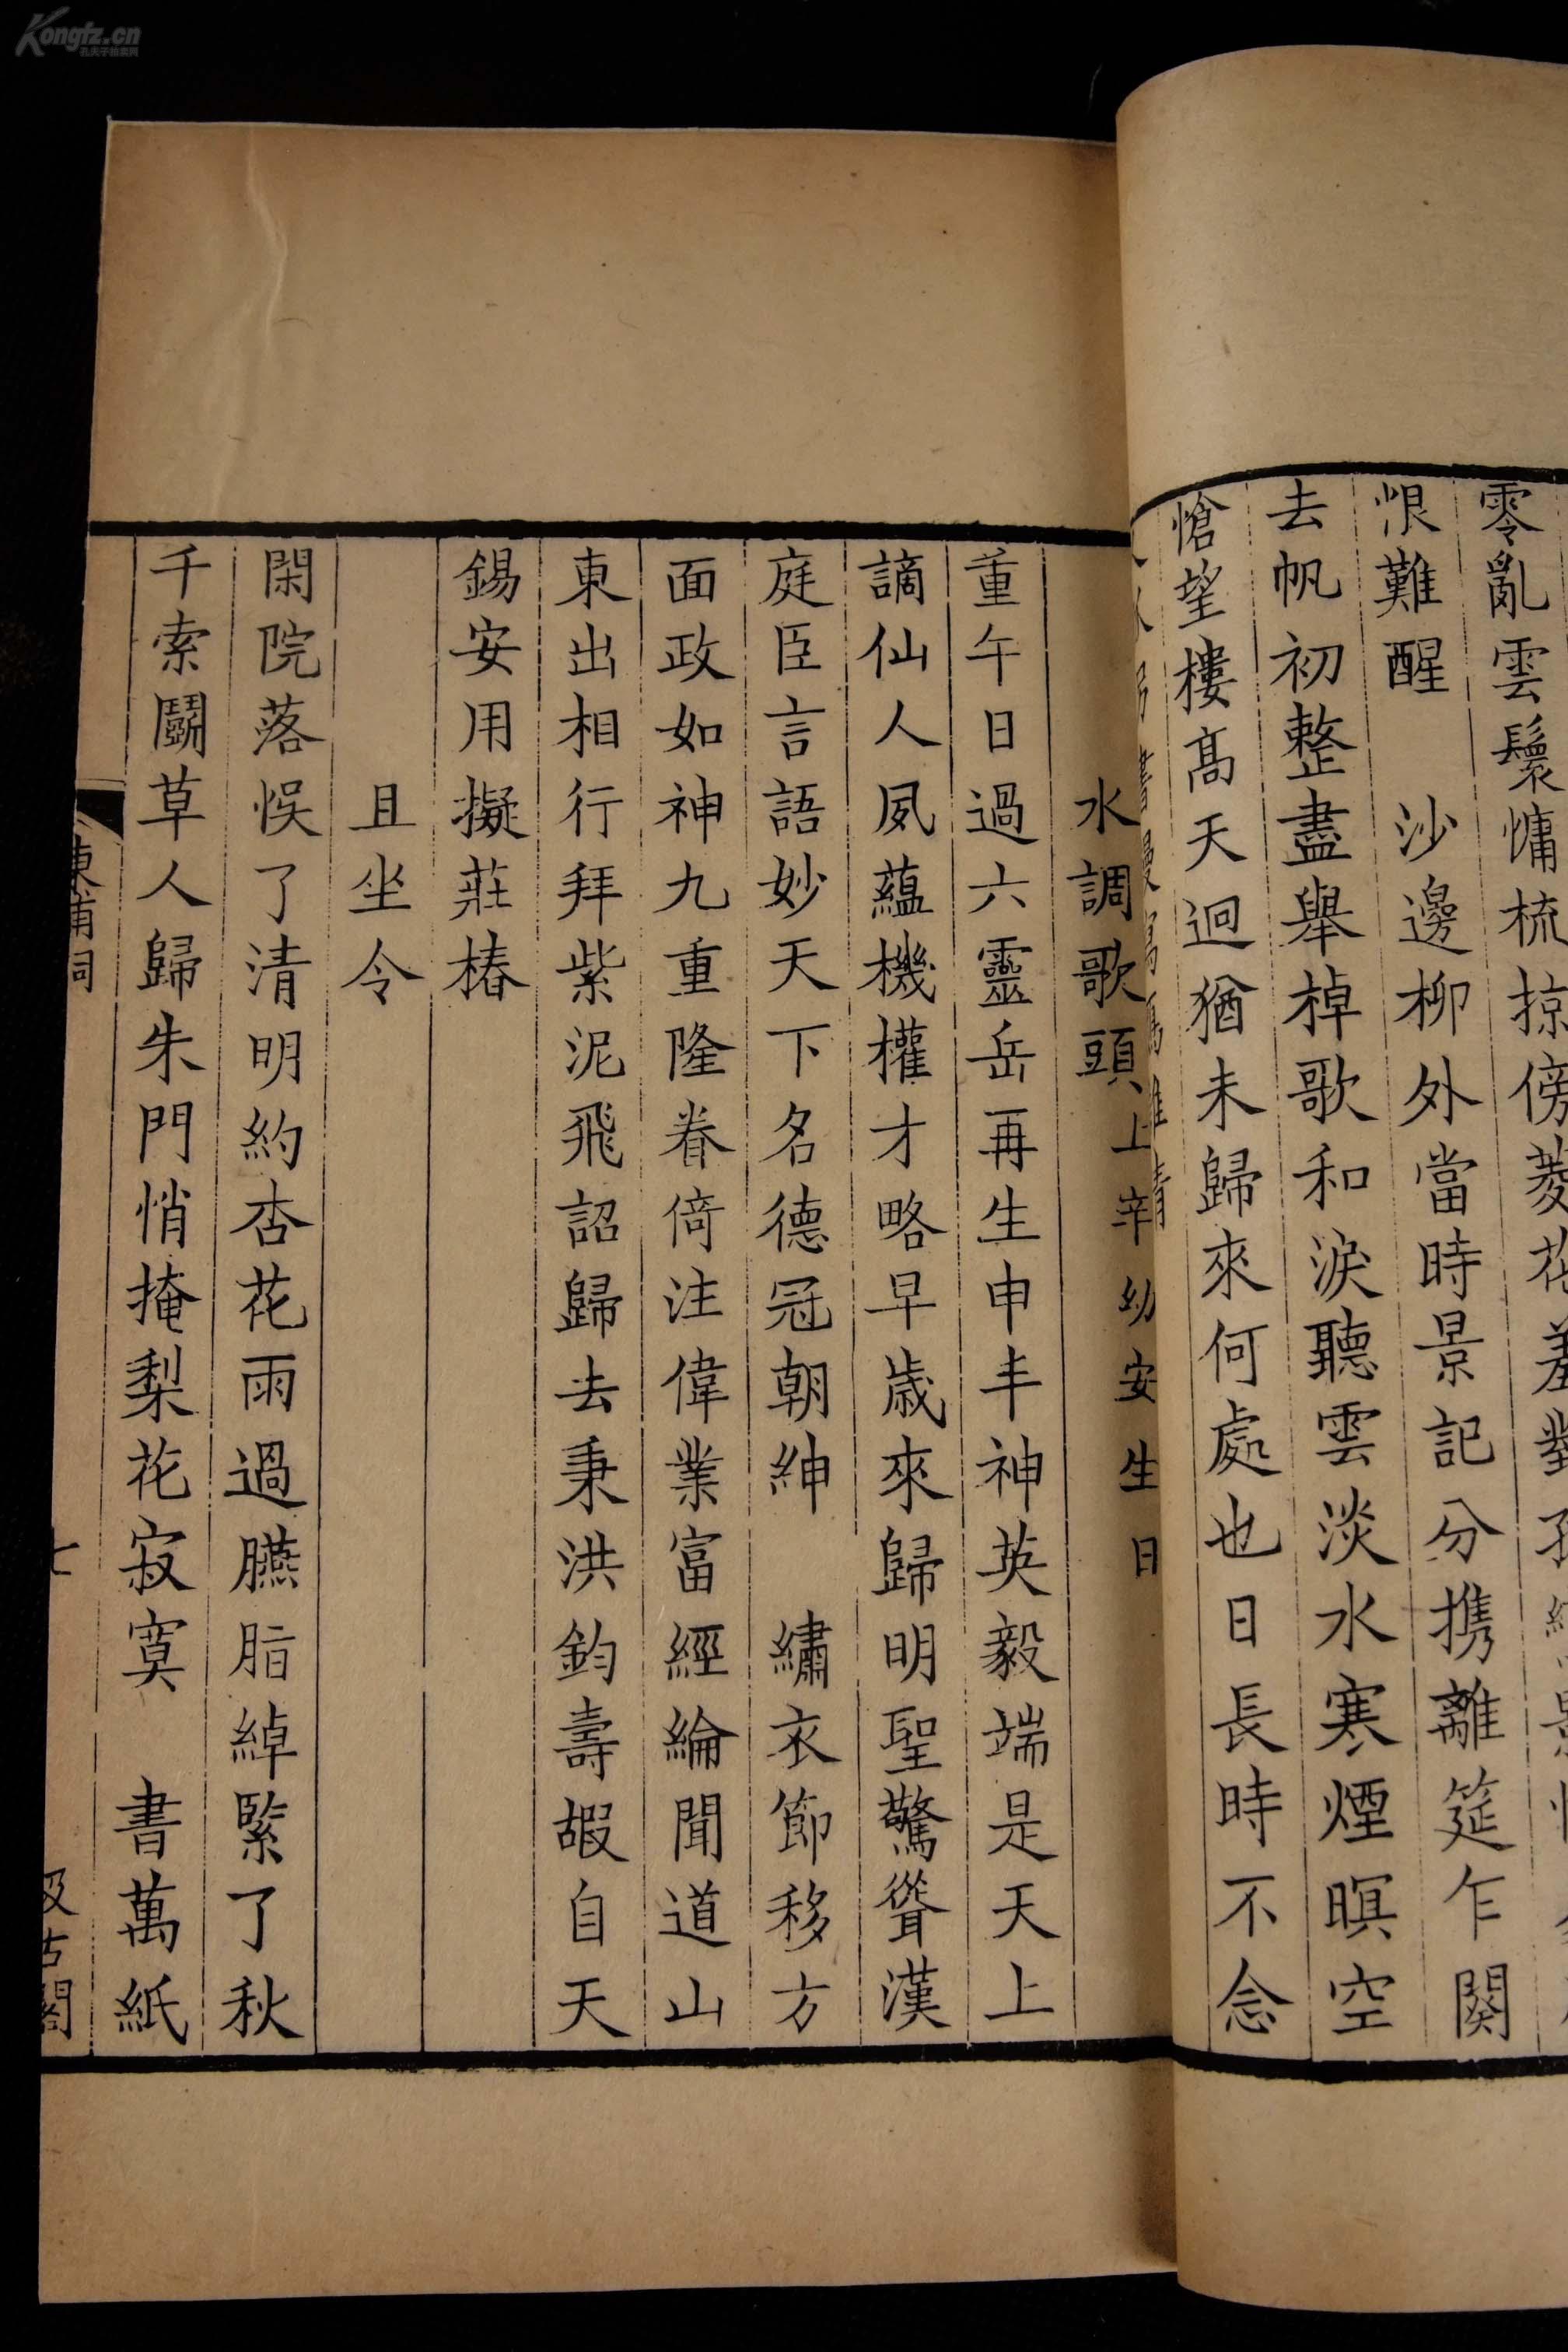 零亂雲鬟慵梳掠傍菱花羞對孤
恨難醒　沙邊柳外當時景記分携離筵乍闋
去帆初整盡舉棹歌和淚聽雲淡水寒煙暝空
愴望樓高天迥猶未歸來何處也日長時不念
水調歌頭上辛幼安生日
重午日過六靈岳再生申丰神英毅端是天上
謫仙人夙蘊機權才略早歲來歸明聖驚聳漢
庭臣言語妙天下名德冠朝紳　繡衣節移方
面政如神九重隆眷倚注偉業富經綸聞道山
東出相行拜紫泥飛詔歸去秉洪鈞壽嘏自天
錫安用擬莊椿
且坐令
閑院落悞了清明約杏花雨過臙脂綽緊了秋
千索鬭草人歸朱門悄掩梨花寂寞　書萬紙
東浦詞
七
汲古閣
Kongfz.cn